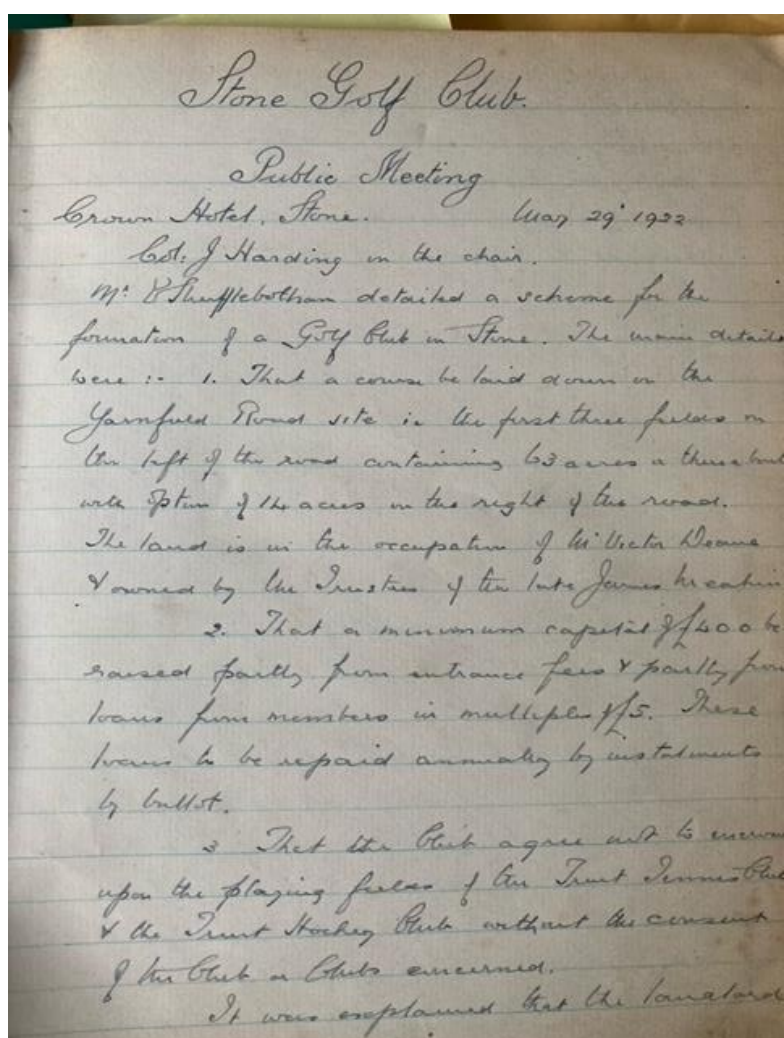 Stone Golf Club.
Public Meeting
Crown Hotel, Stone. May 29' 1922
Col: J Harding in the chair.
Mr Shufflebotham detailed a scheme for the
formation of a Golf Club in Stone. The main details
were :- 1. That a course be laid down on the
Yarnfield Road site i.e. the first three fields on
the left of the road containing 63 acres or thereabout
with option of 14 acres on the right of the road.
The land is in the occupation of Mr Victor Deane
& owned by the Trustees of the late James Meakin
2. That a minimum capital of £400 be
raised partly from entrance fees & partly from
loans from members in multiples of £5. These
loans to be repaid annually by instalments
by ballot.
3 That the Club agree not to
upon the playing fields of the Trent Tennis Club
& the Trent Hockey Club without the consent
of the Club or Clubs concerned.
It was explained that the landlord